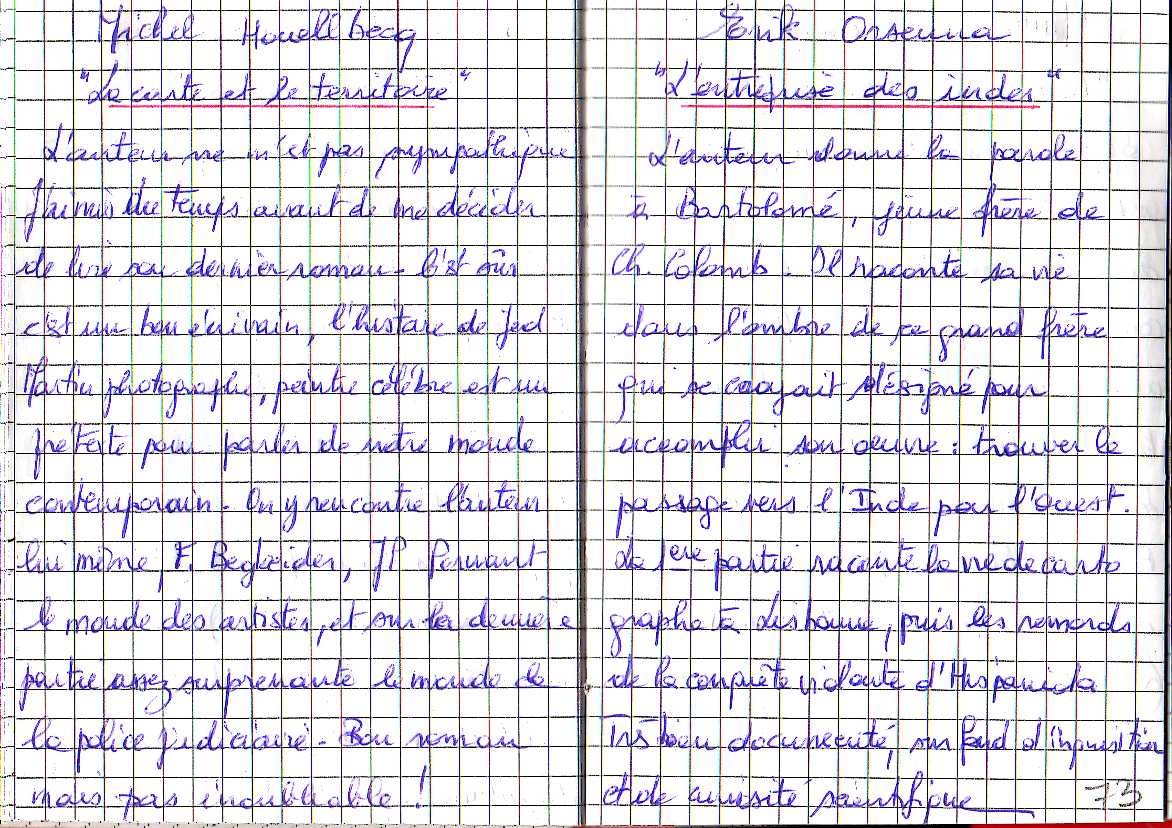 Michel Houellbecq
"La carte et le territoire"
L'auteur ne m'est pas sympathique
J'ai mis du temps avant de me décider
de lire son dernier roman - C'est sûr
c'est un bon écrivain, l'histoire de Jed
Martin photographe, peintre célèbre est un
prétexte pour parler de notre monde
contemporain - On y rencontre l'auteur
lui même, F. Begbeider, JP Pernant
le monde des artistes, et sur la dernière
partie assez surprenante le monde de
la police judiciaire - Bon roman
mais pas inoubliable !
Erik Orsenna
"L'entreprise des indes"
L'auteur donne la parole
à Bartolomé, jeune frère de
Ch. Colomb. Il raconte sa vie
dans l'ombre de ce grand frère
qui se croyait désigné pour
accomplir son oeuvre : trouver le
passage vers l'Inde par l'Ouest.
La 1ere partie raconte la vie de carto
graphe à Lisbonne, puis les remords
de la conquête violente d'Hispaniola
Très bien documenté, sur fond d'inquisition
et de curiosité scientifique
73